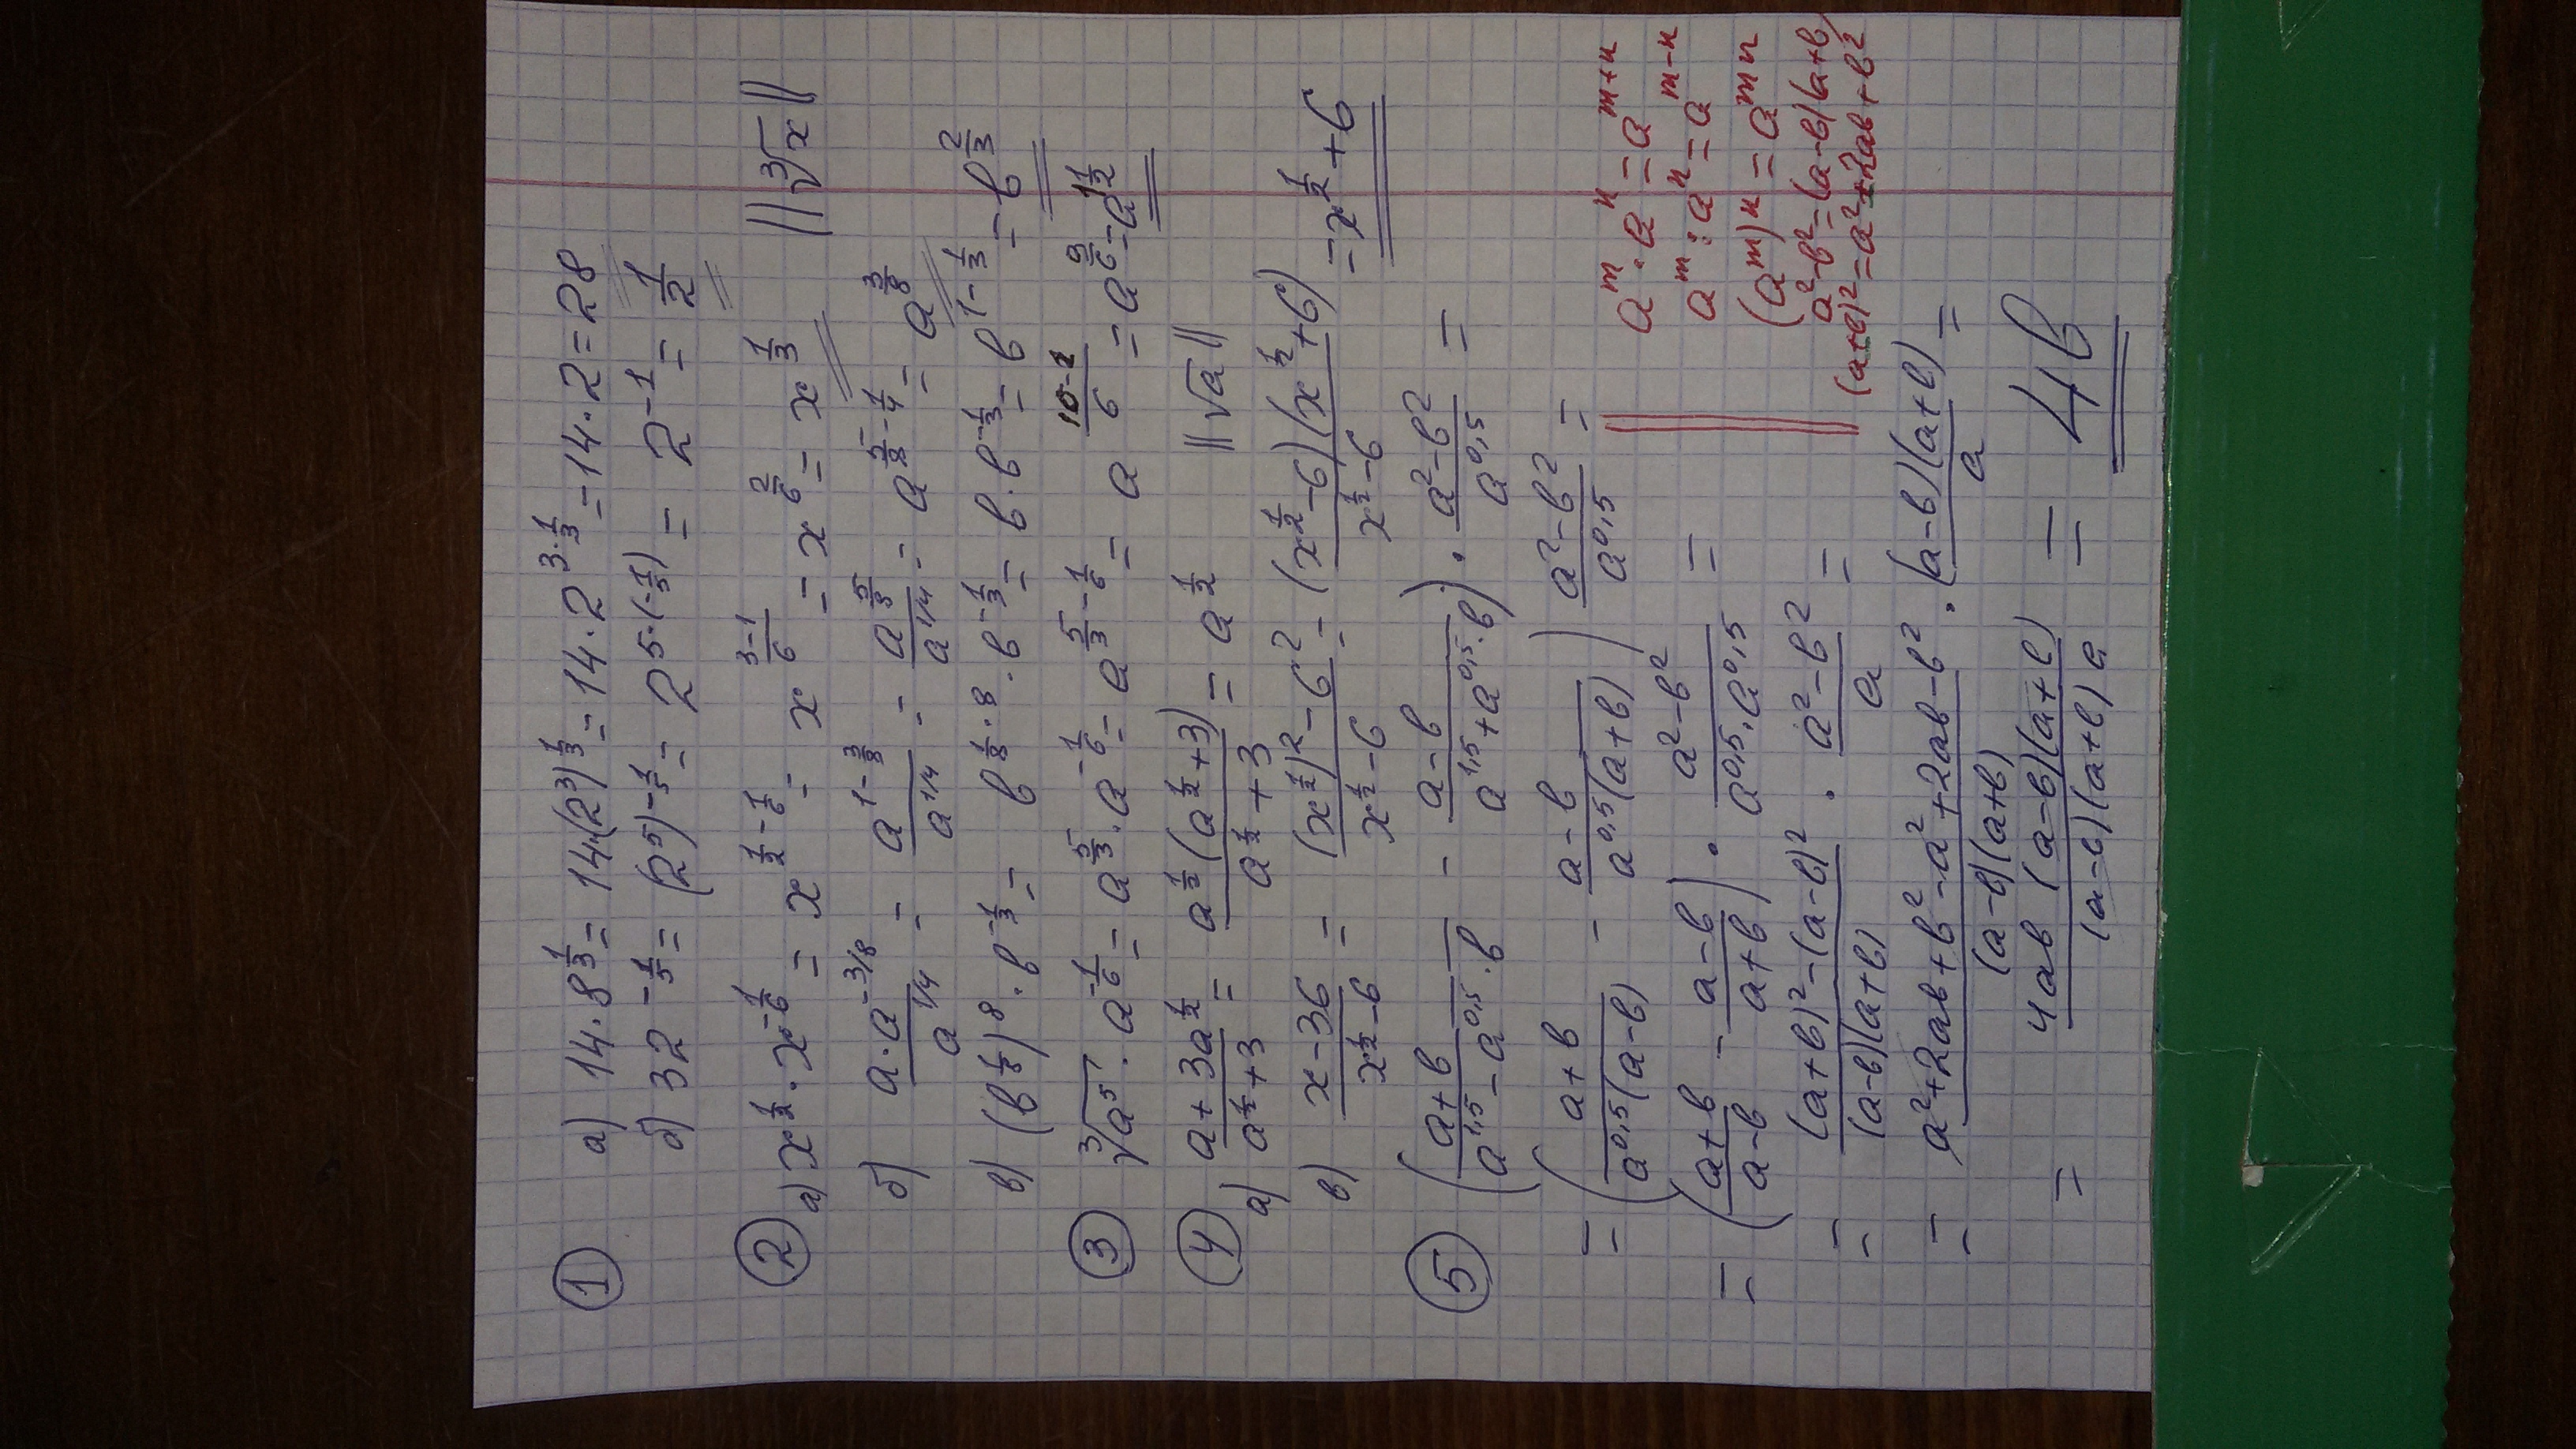 ① а) 14·8^{1/3} = 14·(2^3)^{1/3} = 14·2^{3·1/3} = 14·2 = 28
б) 32^{-1/5} = (2^5)^{-1/5} = 2^{5·(-1/5)} = 2^{-1} = 1/2
② а) x^{1/2} · x^{-1/6} = x^{1/2-1/6} = x^{(3-1)/6} = x^{2/6} = x^{1/3} ||∛x||
б) (a·a^{-3/8})/a^{1/4} = a^{1-3/8}/a^{1/4} = a^{5/8}/a^{1/4} = a^{5/8-1/4} = a^{3/8}
в) (в^{1/8})^8 · в^{-1/3} = в^{1/8·8} · в^{-1/3} = в·в^{-1/3} = в^{1-1/3} = в^{2/3}
③ ∛a^5 · a^{-1/6} = a^{5/3} · a^{-1/6} = a^{5/3-1/6} = a^{(10-1)/6} = a^{9/6} = a^{1 1/2}
④ а) (a+3a^{1/2})/(a^{1/2}+3) = a^{1/2}(a^{1/2}+3)/(a^{1/2}+3) = a^{1/2} ||√a||
в) (x-36)/(x^{1/2}-6) = ((x^{1/2})^2-6^2)/(x^{1/2}-6) = (x^{1/2}-6)(x^{1/2}+6)/(x^{1/2}-6) = x^{1/2}+6
⑤ ((a+в)/(a^{1,5}-a^{0,5}·в) - (a-в)/(a^{1,5}+a^{0,5}·в)) · (a^2-в^2)/a^{0,5} =
= ((a+в)/(a^{0,5}(a-в)) - (a-в)/(a^{0,5}(a+в))) (a^2-в^2)/a^{0,5} =
= ((a+в)/(a-в) - (a-в)/(a+в)) · (a^2-в^2)/(a^{0,5}·a^{0,5}) =
= ((a+в)^2-(a-в)^2)/((a-в)(a+в)) · (a^2-в^2)/a =
= (a^2+2aв+в^2-a^2+2aв-в^2)/((a-в)(a+в)) · (a-в)(a+в)/a =
= 4aв(a-в)(a+в)/((a-в)(a+в)a) = 4в
a^m · a^n = a^{m+n}
a^m : a^n = a^{m-n}
(a^m)^n = a^{mn}
a^2-в^2=(a-в)(a+в)
(a+в)^2=a^2+2aв+в^2